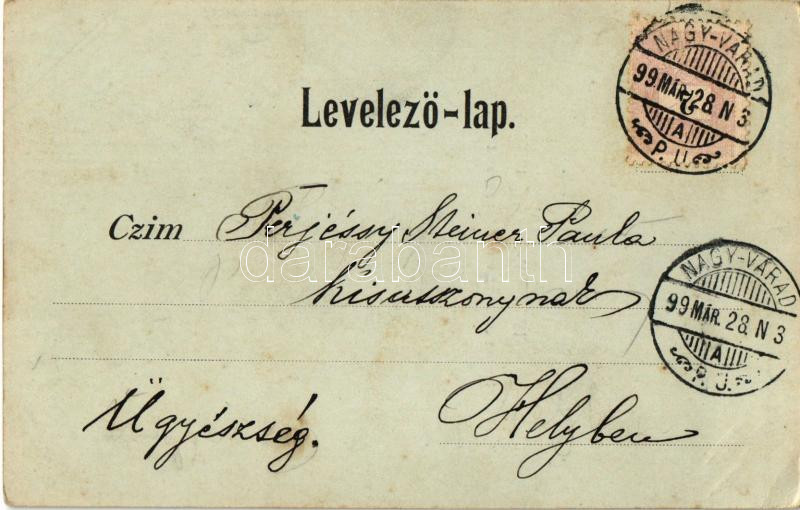 NAGY-VÁRAD
99 MÁR. 28 N 3
A
P. U.
Levelező-lap.
Czim Perjéssy Steiner Paula
kisasszonynak
NAGY-VÁRAD
99 MÁR. 28 N 3
A
P. U.
Ügyészség. Helyben
darabanth